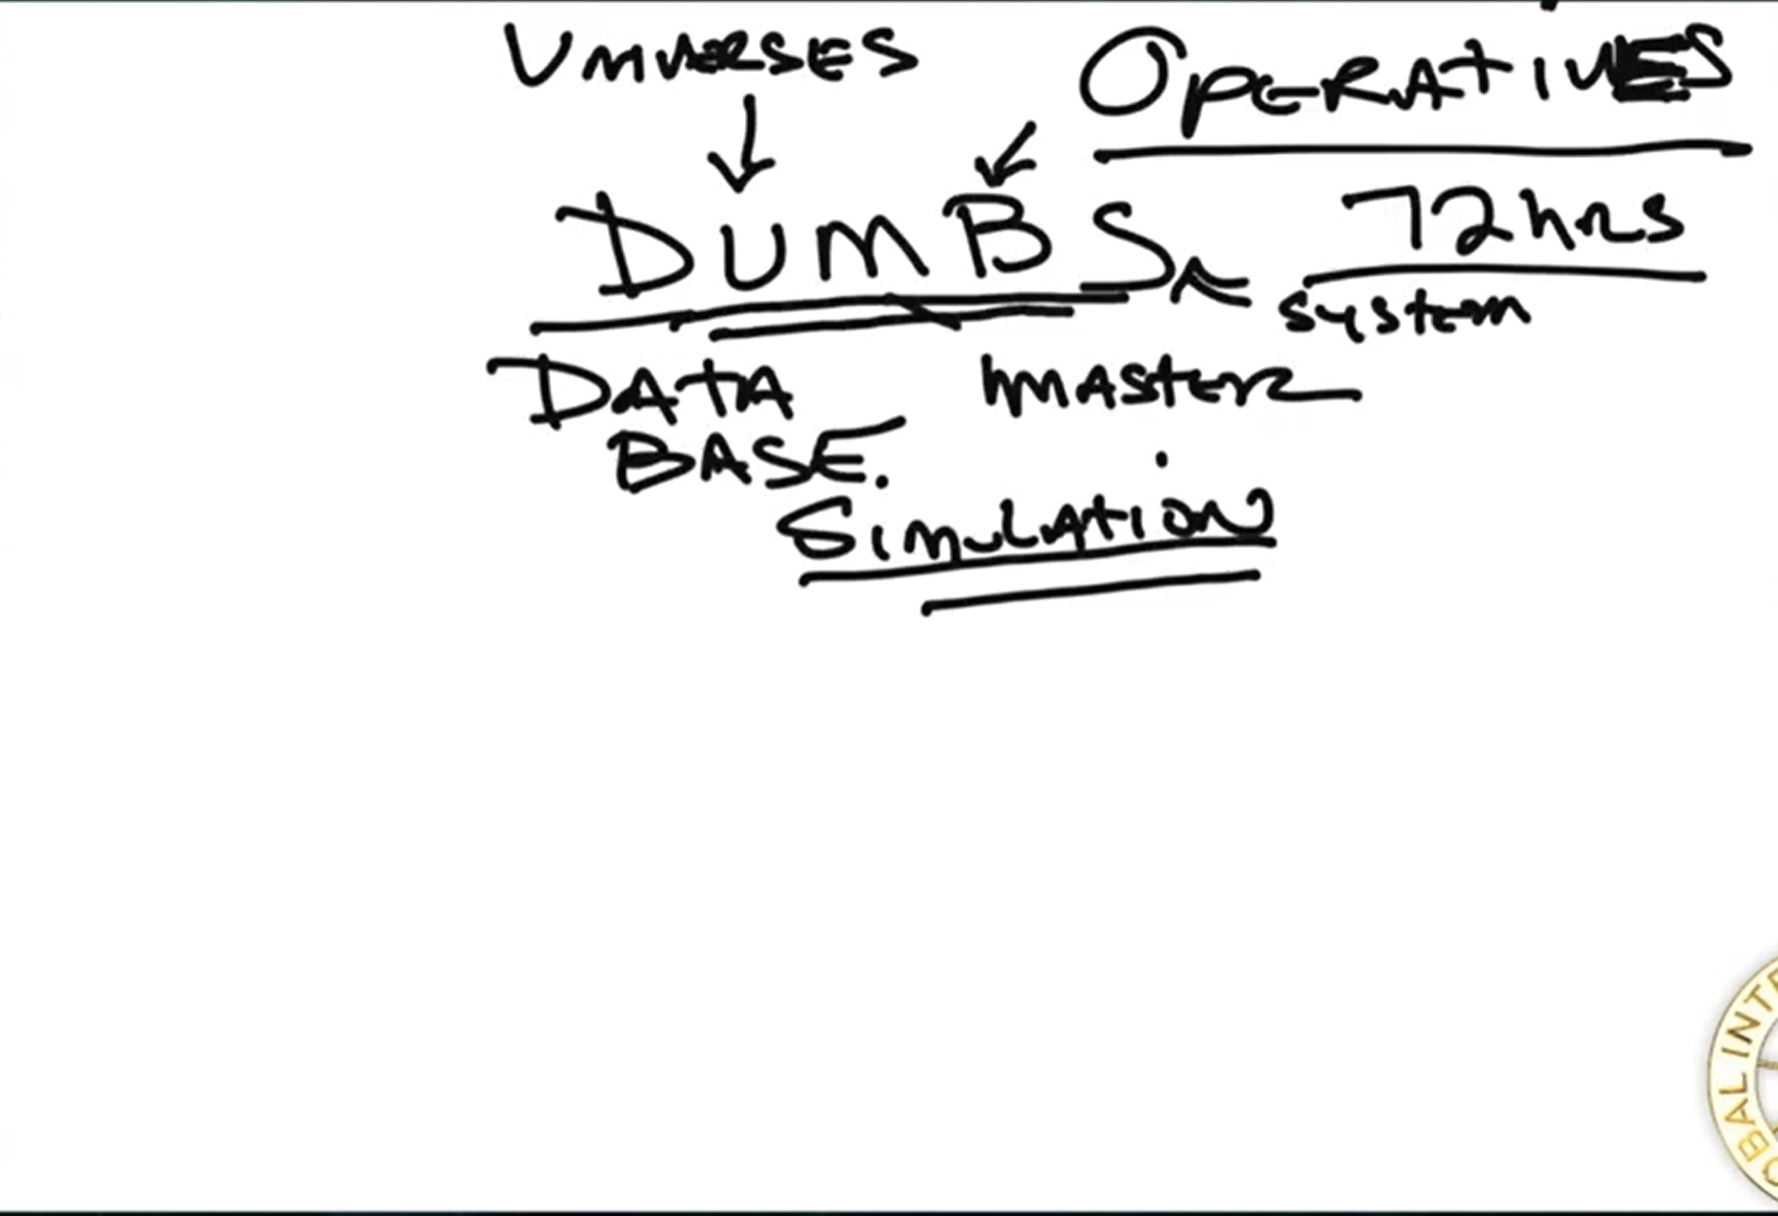 UNIVERSES
OPERATIVES
DUMBS
72hrs
system
DATA
BASE.
MASTER
SIMULATION
OBAL INTE